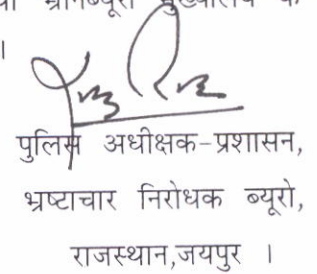 मुख्यालय के
।
पुलिस अधीक्षक-प्रशासन,
भ्रष्टाचार निरोधक ब्यूरो,
राजस्थान,जयपुर ।